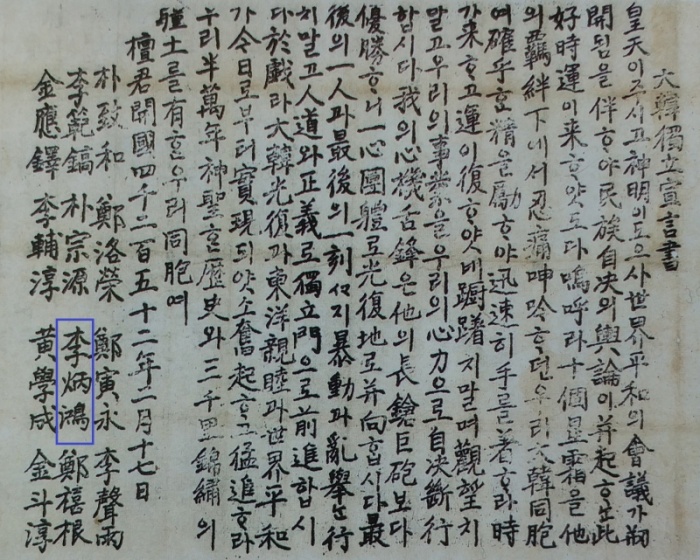 大韓獨立宣言書
皇天이주시고神明이도으사世界平和의會議가刱
開됨을伴ᄒᆞ야民族自决의輿論이并起ᄒᆞᄂᆞᆫ此
好時運이来ᄒᆞ얏도다嗚呼라十個星霜을他
의羈絆下에서忍痛呻吟ᄒᆞ던우리大韓同胞
여確乎ᄒᆞᆫ精을勵ᄒᆞ야迅速히手를着ᄒᆞ라時
가来ᄒᆞ고運이復ᄒᆞ얏네躕躇치말며觀望치
말고우리의事業을우리의心力으로自决斷行
합시다我의心機舌鋒은他의長鎗巨砲보다
優勝ᄒᆞ니一心團體로光復地로并向합시다最
後의一人과最後의一刻ᄭᆞ지暴動과亂擧는行
치말고人道와正義로獨立門으로前進합시
다於戱라大韓光復과東洋親睦과世界平和
가今日로부터實現되얏소奮起ᄒᆞ고猛進ᄒᆞ라
우리半萬年神聖ᄒᆞᆫ歷史와三千里錦繡의
疆土를有ᄒᆞᆫ우리同胞여
檀君開國四千二百五十二年二月十七日
朴致和 鄭洛榮 鄭寅永 李聲雨
李範鎬 朴宗源 李炳鴻 鄭禧根
金應鐸 李輔淳 黃學成 金斗淳